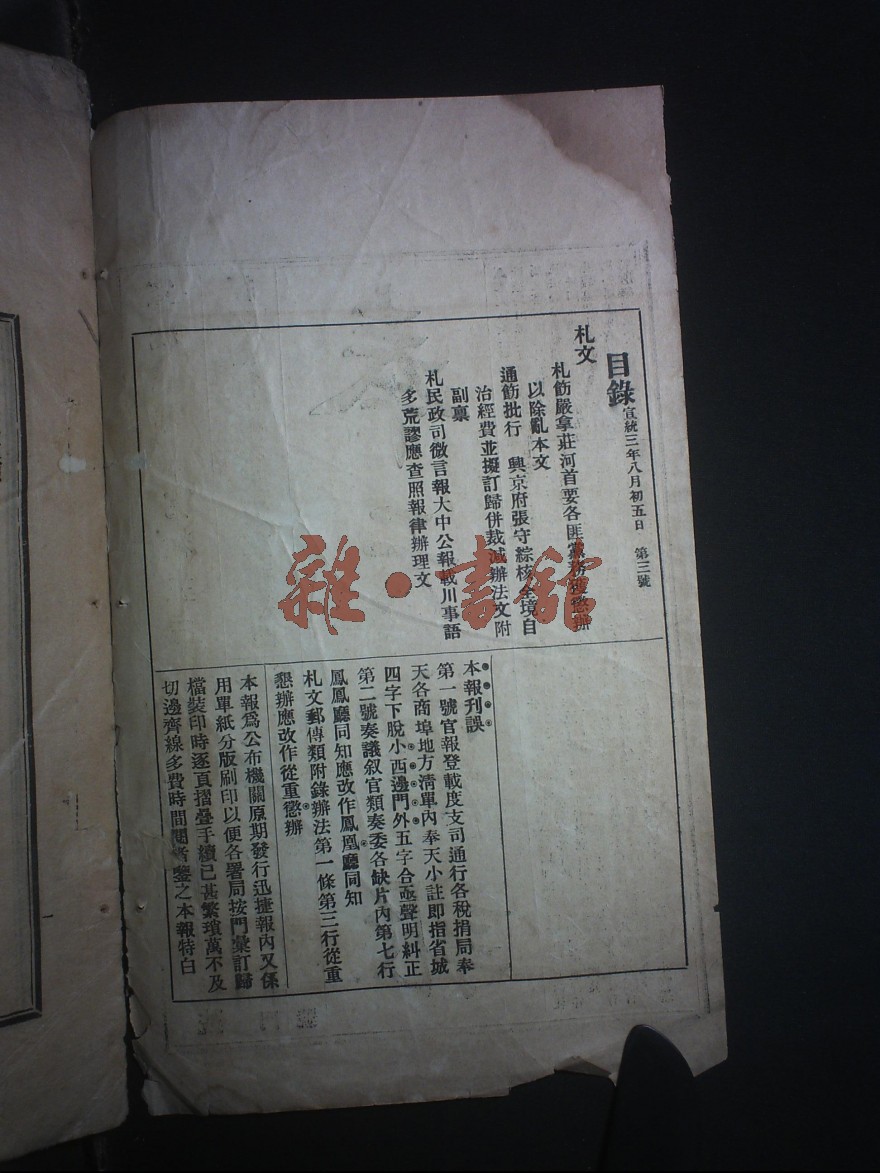 目錄 宣統三年八月初五日 第三號
札文
札飭嚴拿莊河首要各匪黨務獲懲辦
以除亂本文
通飭批行 興京府張守綜核全境自
治經費並擬訂歸併裁減辦法文附
副稟
札民政司微言報大中公報載川事語
多荒謬應查照報律辦理文
本報刊誤
第一號官報登載度支司通行各稅捐局奉
天各商埠地方清單內奉天小註即指省城
四字下脫小西邊門外五字合亟聲明糾正
第二號奏議叙官類奏委各缺片內第七行
鳳鳳廳同知應改作鳳凰廳同知
札文郵傳類附錄辦法第一條第三行從重
懇辦應改作從重懲辦
本報爲公布機關原期發行迅捷報內又係
用單紙分版刷印以便各署局按門彙訂歸
檔裝印時逐頁摺疊手續已甚繁瑣萬不及
切邊齊線多費時間閱者鑒之本報特白
雜·書館